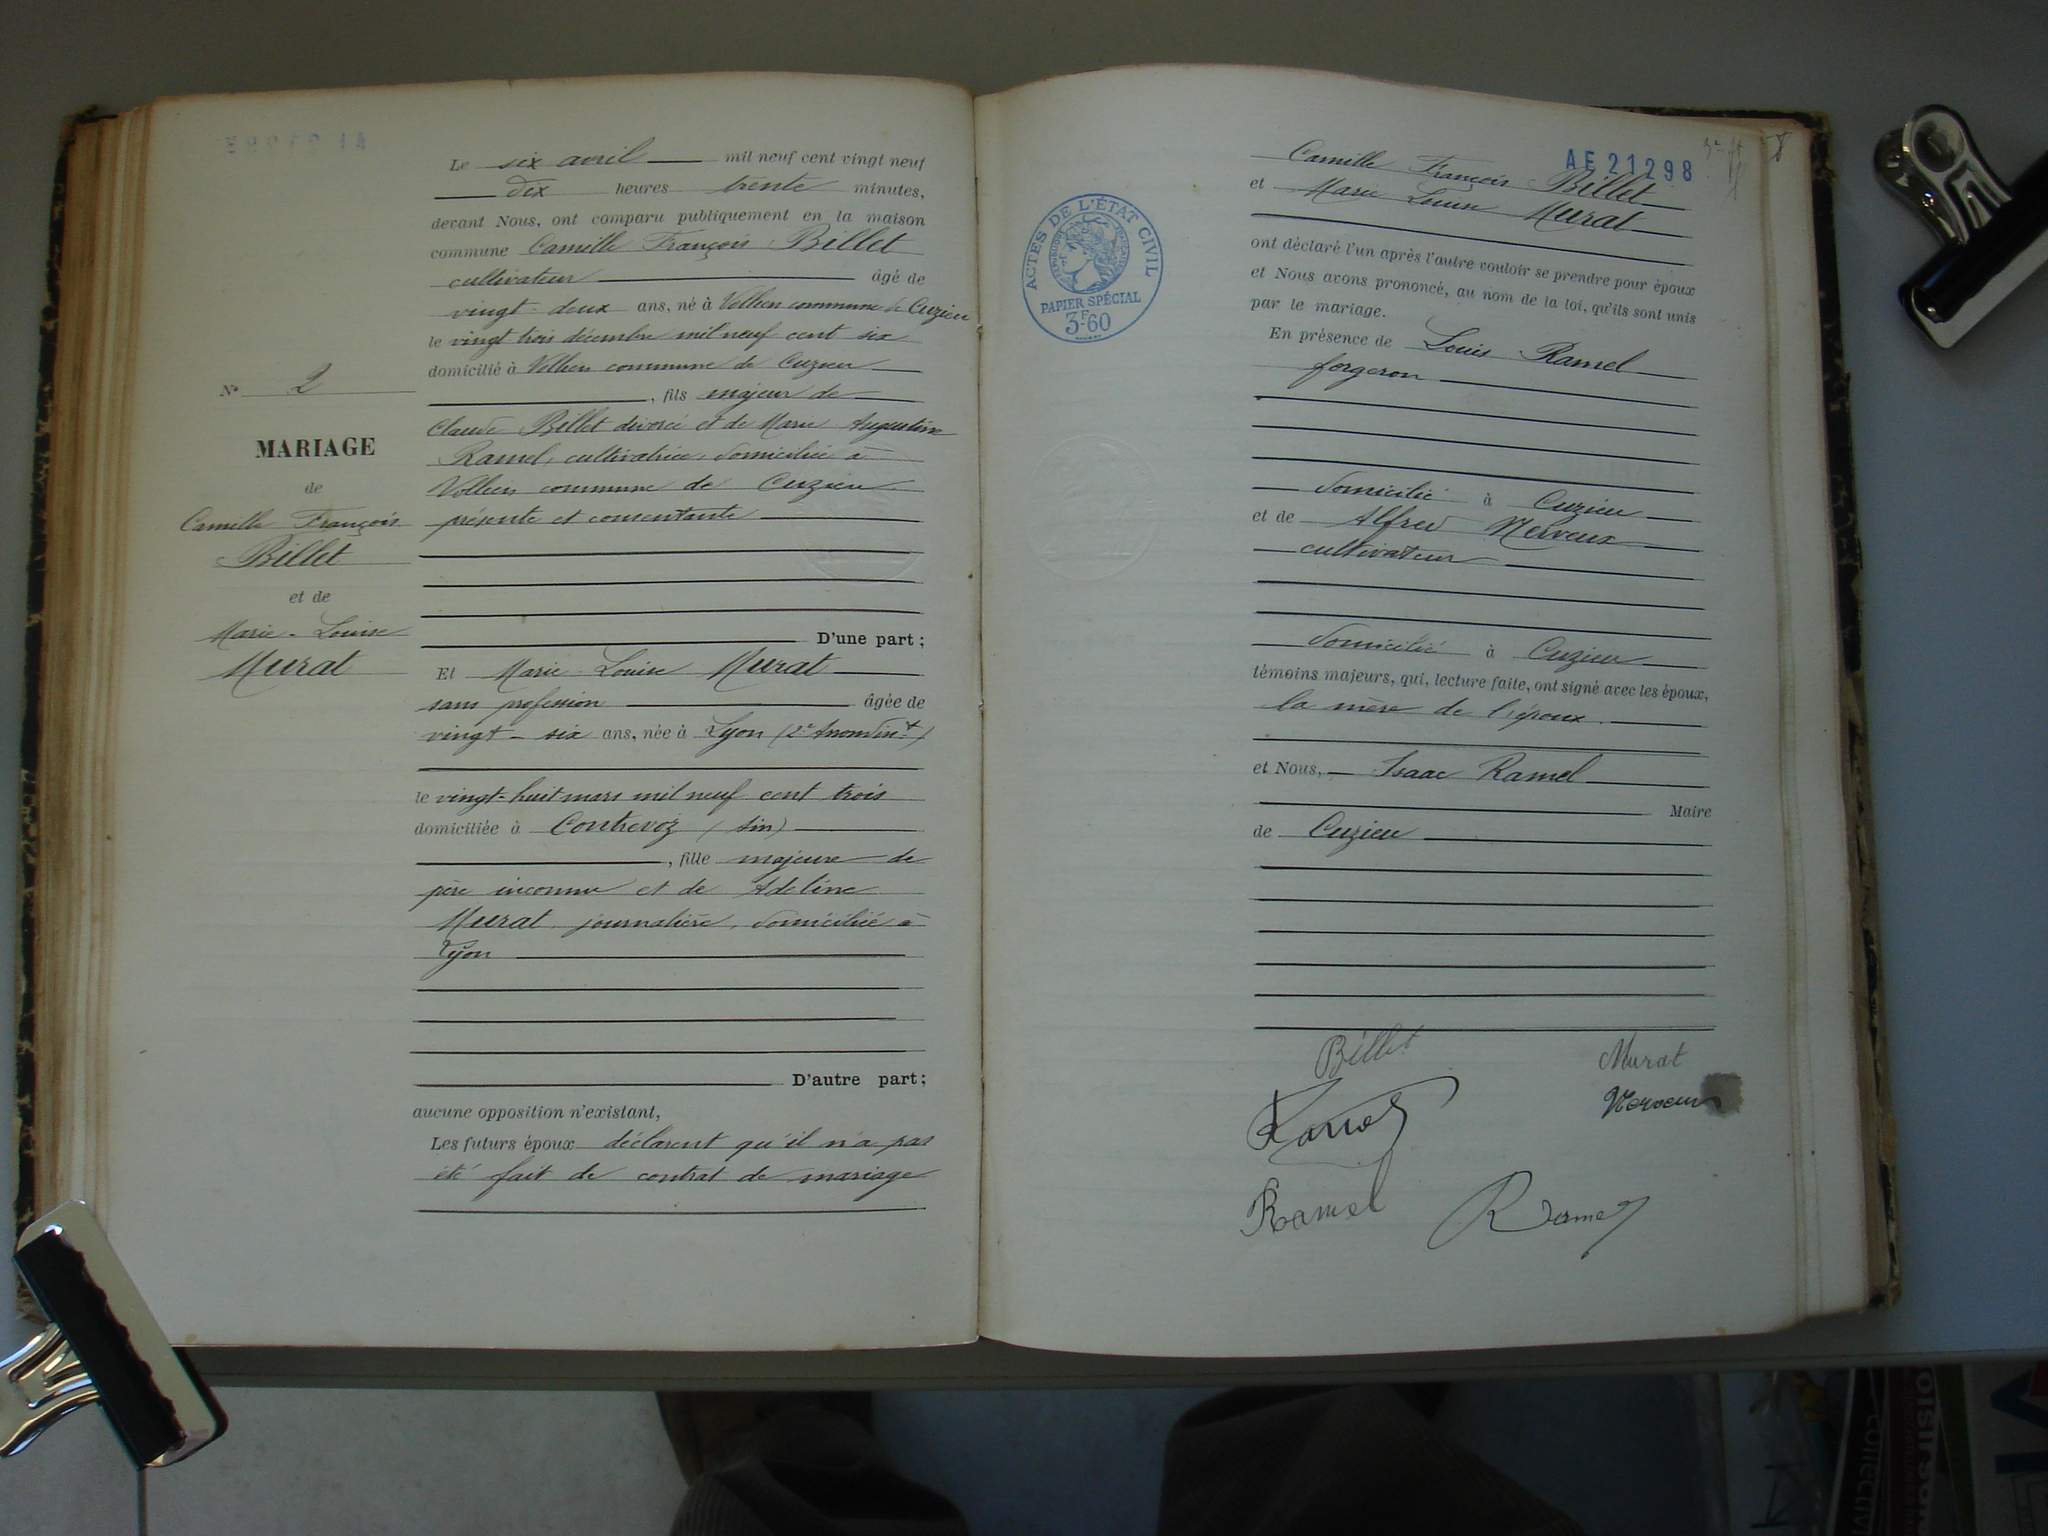 Le six avril mil neuf cent vingt neuf
dix heures trente minutes,
devant Nous, ont comparu publiquement en la maison
commune Camille François Billet
cultivateur âgé de
vingt-deux ans, né à Vollien commune de Cuzieu
le vingt trois décembre mil neuf cent six
domicilié à Vollien commune de Cuzieu
, fils majeur de
Claude Billet divorcé et de Marie Augustine
Ramel, cultivatrice, domiciliée à
Vollien commune de Cuzieu
présente et consentante
D'une part ;
N° 2
MARIAGE
de
Camille François
Billet
et de
Marie-Louise
Murat
Et Marie-Louise Murat
sans profession âgée de
vingt-six ans, née à Lyon (2e Arrondint)
le vingt-huit mars mil neuf cent trois
domiciliée à Contrevoz (Ain)
, fille majeure de
père inconnu et de Adeline
Murat, journalière, domiciliée à
Lyon
D'autre part ;
aucune opposition n'existant,
Les futurs époux déclarent qu'il n'a pas
été fait de contrat de mariage
AE 21298
ACTES DE L'ÉTAT CIVIL
PAPIER SPÉCIAL
3F.60
Camille François Billet
et Marie Louise Murat
ont déclaré l'un après l'autre vouloir se prendre pour époux
et Nous avons prononcé, au nom de la loi, qu'ils sont unis
par le mariage.
En présence de Louis Ramel
forgeron
domicilié à Cuzieu
et de Alfred Nerveux
cultivateur
domicilié à Cuzieu
témoins majeurs, qui, lecture faite, ont signé avec les époux,
la mère de l'époux.
et Nous, Isaac Ramel
Maire
de Cuzieu
Billet Murat
Ramel Nerveux
Ramel